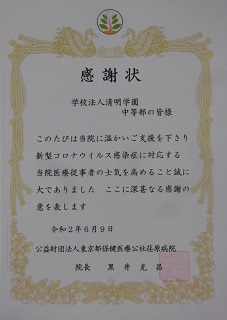 感謝状
学校法人清明学園
中等部の皆様
このたびは当院に温かいご支援を下さり
新型コロナウイルス感染症に対応する
当院医療従事者の士気を高めること誠に
大でありました ここに深甚なる感謝の
意を表します
令和2年6月9日
公益財団法人東京都保健医療公社荏原病院
院長 黒井克昌